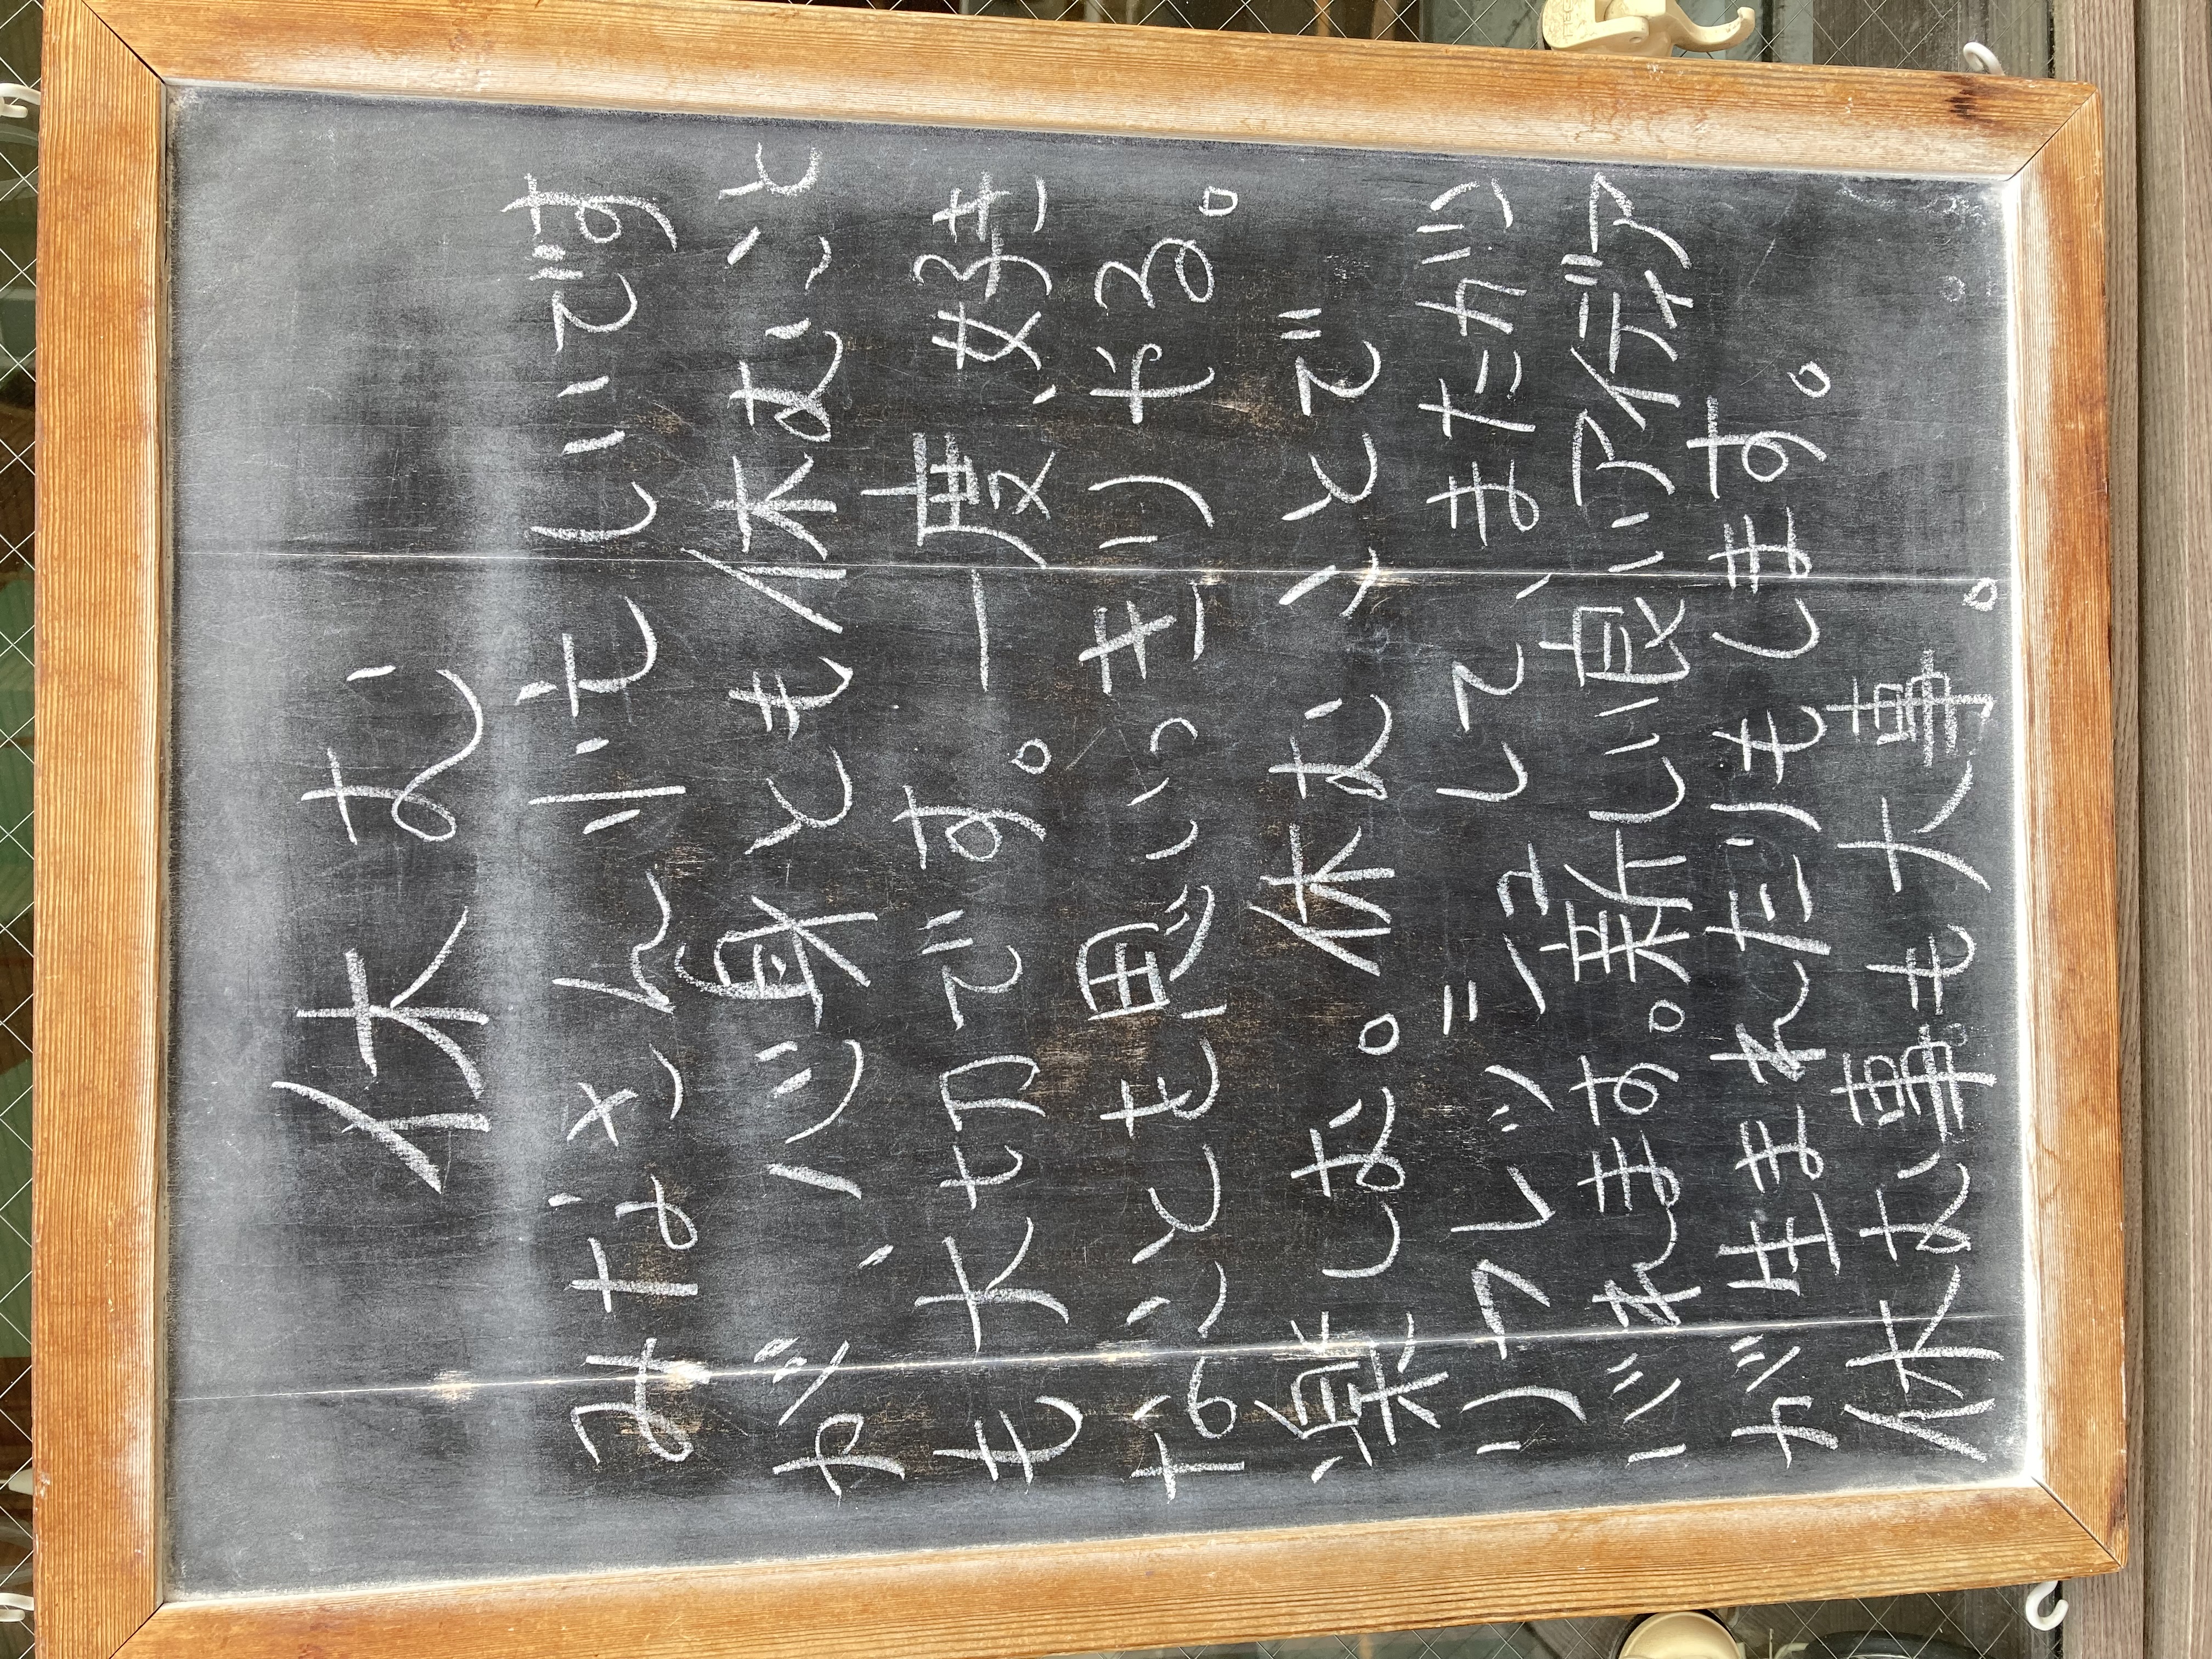 休む
みなさん忙しいです
が、心身とも休むこと
も大切です。一度、好き
なことも思いっきりやる。
楽しむ。休むことで
リフレッシュして、またガン
バれます。新しい良いアイデア
が生まれたりもします。
休む事も大事。